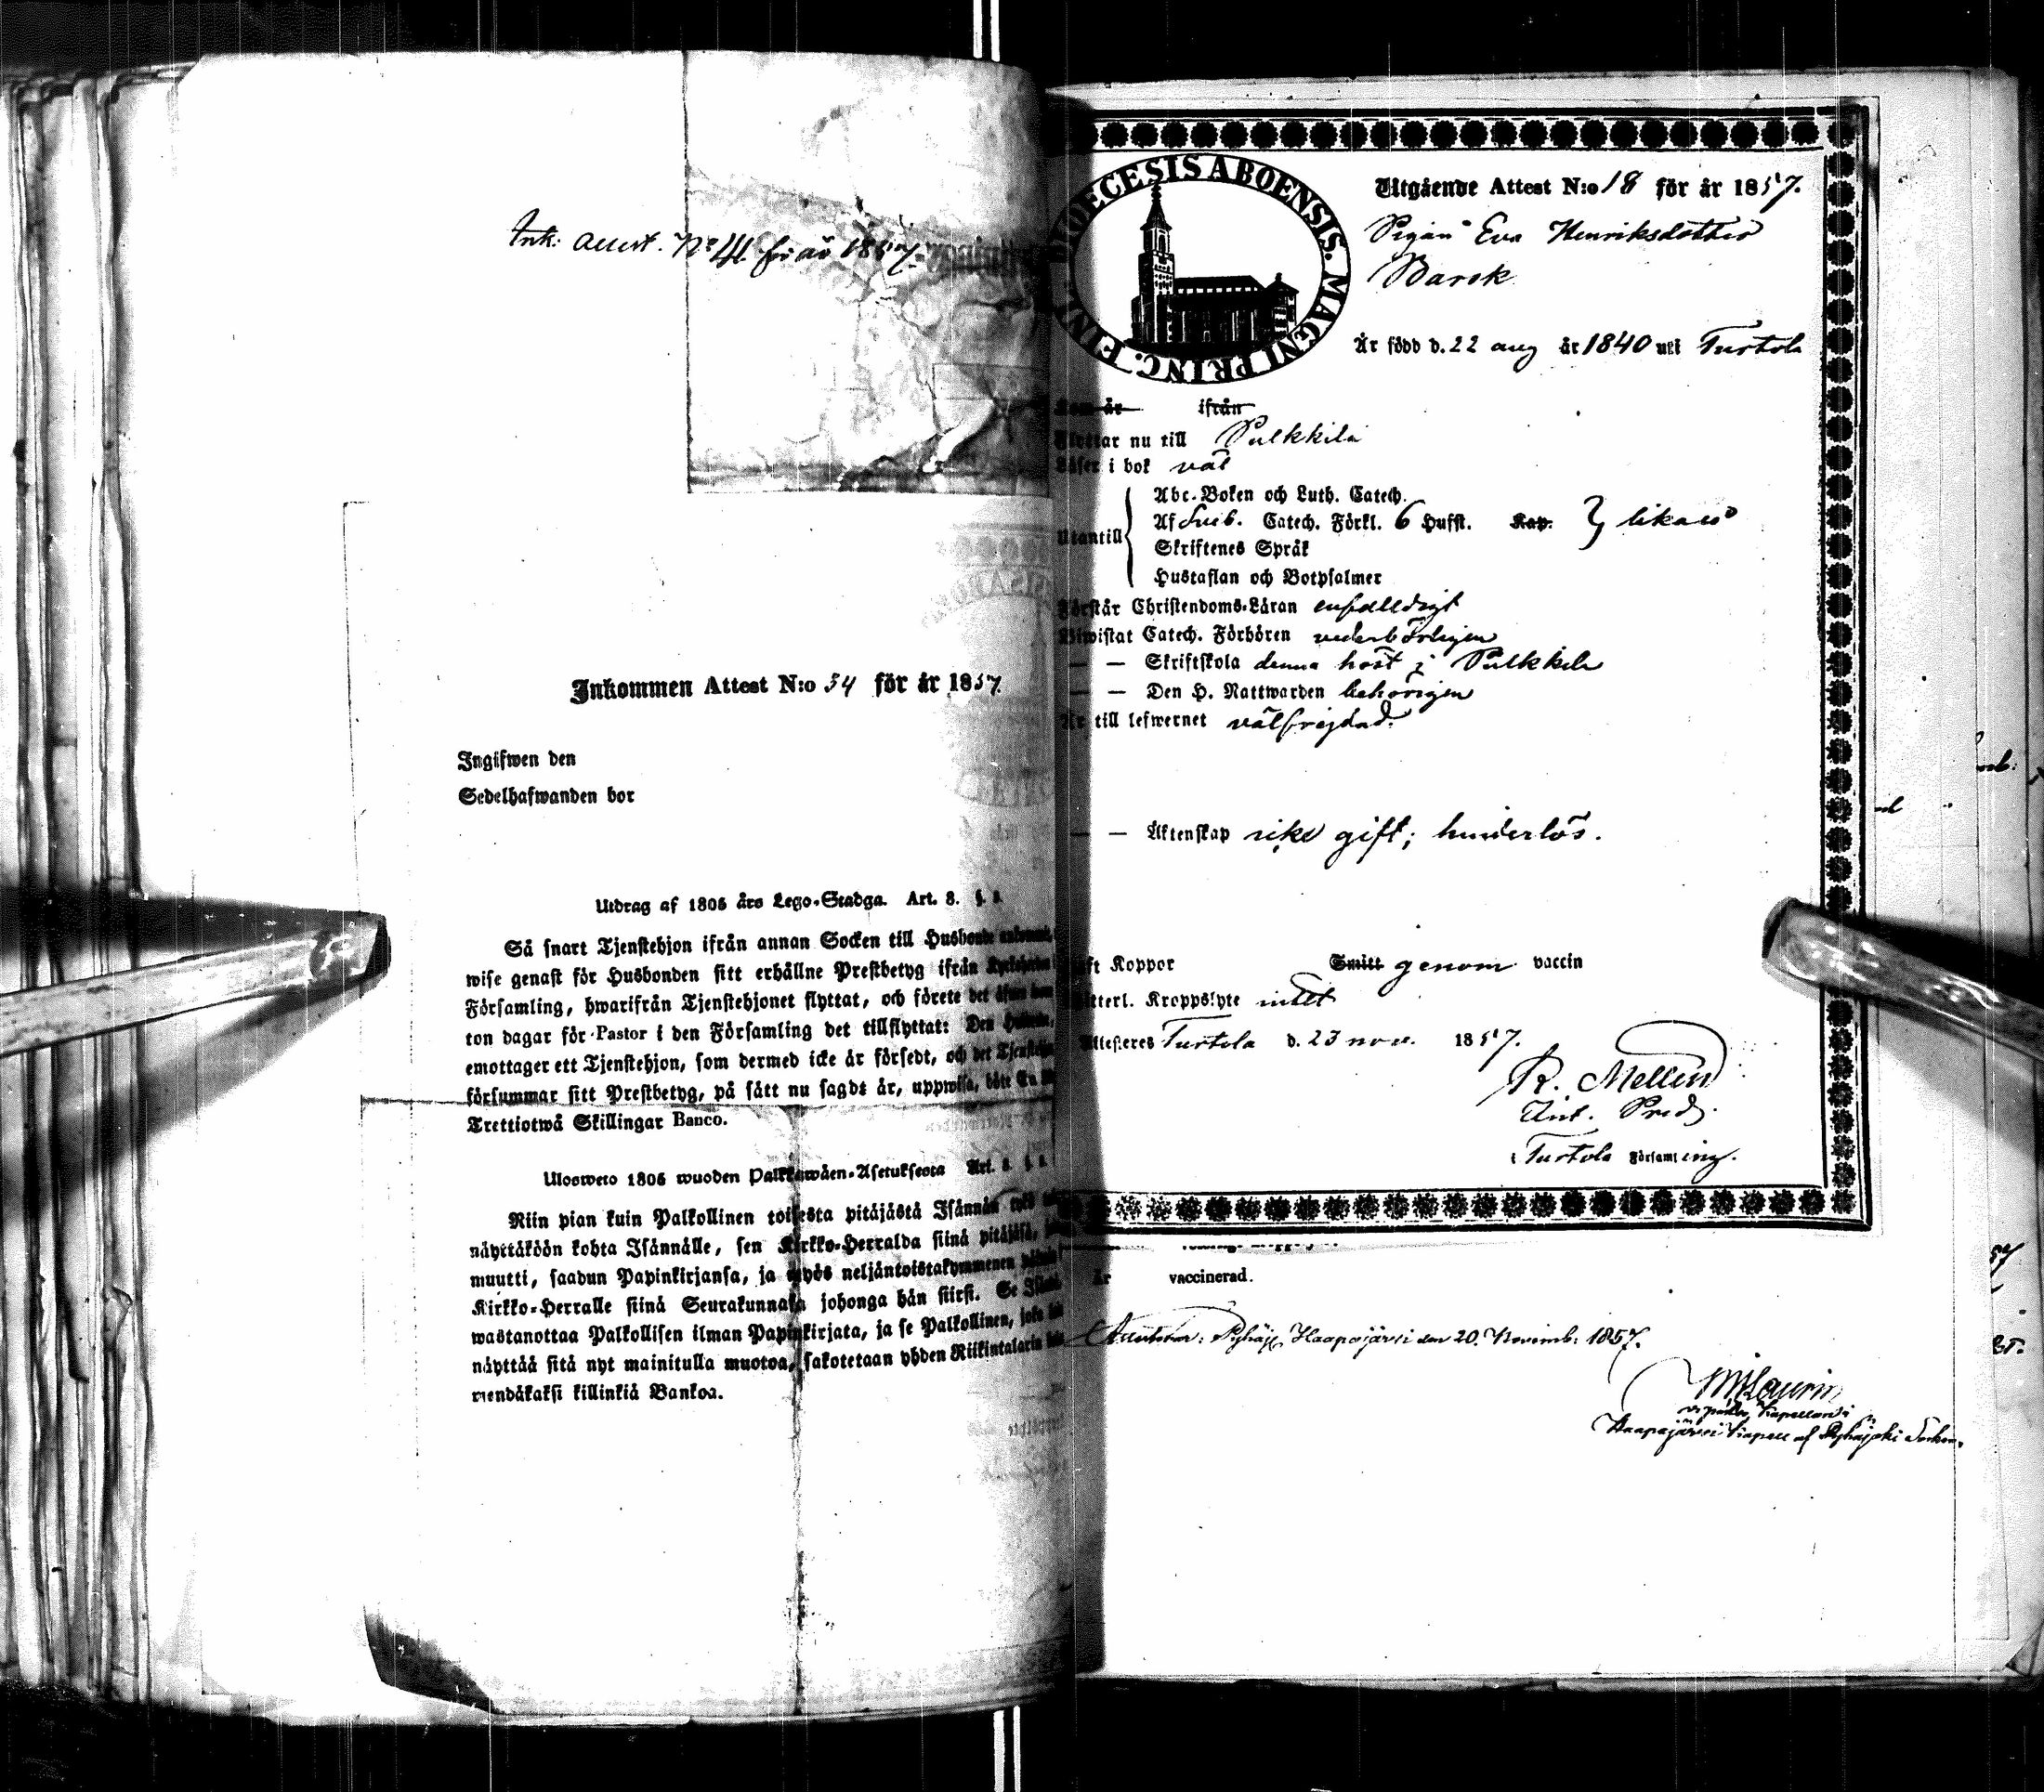 Ink: attest. No 41 för år 1857.
Inkommen Attest N:o 34 för år 1857.
Ingifwen den
Sedelhafwanden bor
Utdrag af 1805 års Lego-Stadga. Art. 8. §.
Så snart Tjenstehjon ifrån annan Socken till Husbonde
wise genast för Husbonden sitt erhållne Prestbetyg ifrån
Församling, hwarifrån Tjenstehjonet flyttat, och förete det
ton dagar för Pastor i den Församling det tillflyttat: Den
emottager ett Tjenstehjon, som dermed icke är försedt, och det
försummar sitt Prestbetyg, på sätt nu sagdt är, uppwisa, böte En
Trettiotwå Skillingar Banco.
Ulosweto 1805 wuoden Palkkawäen-Asetuksesta Art. 8. §.
Niin pian kuin Palkollinen toisesta pitäjästä Isännän tykö
näyttäköön kohta Isännälle, sen Kirkko-Herralda siinä pitäjäsä,
muutti, saadun Papinkirjansa, ja myös neljäntoistakymmenen
Kirkko-Herralle siinä Seurakunnasa johonga hän siirsi. Se
wastanottaa Palkollisen ilman Papinkirjata, ja se Palkollinen, joka
näyttää sitä nyt mainitulla muotoa, sakotetaan yhden Riikintalarin
mendäkaksi killinkiä Bankoa.
DIOECESIS ABOENSIS. MAGNI PRINC. FINL.
Utgående Attest N:o 18 för år 1857.
Pigan Eva Henriksdotter
Barsk
Är född d. 22 aug år 1840 uti Turtola
Kom år ifrån
Flyttar nu till Pulkkila
Läser i bok väl
Utantill
Abc-Boken och Luth. Catech.
Af Sveb. Catech. Förkl. 6 Hufst. Kap. } likaså
Skriftenes Språk
Hustaflan och Botpsalmer
Förstår Christendoms-Läran enfaldigt
Biwistat Catech. Förhören vederbörligen
— — Skriftskola denna höst i Pulkkila
— — Den H. Nattwarden behörigen
Är till lefwernet välfrejdad.
— — Äktenskap icke gift; hinderlös.
Haft Koppor Smitt genom vaccin
Witterl. Kroppslyte intet
Attesteres Turtola d. 23 nov. 1857.
R. Mellin
Turtola Församling.
Är vaccinerad.
Attesterar: Pyhäj. Haapajärvi den 20. Novemb: 1857.
Kapellan i
Haapajärvi Kapell af Pyhäjoki Socken.